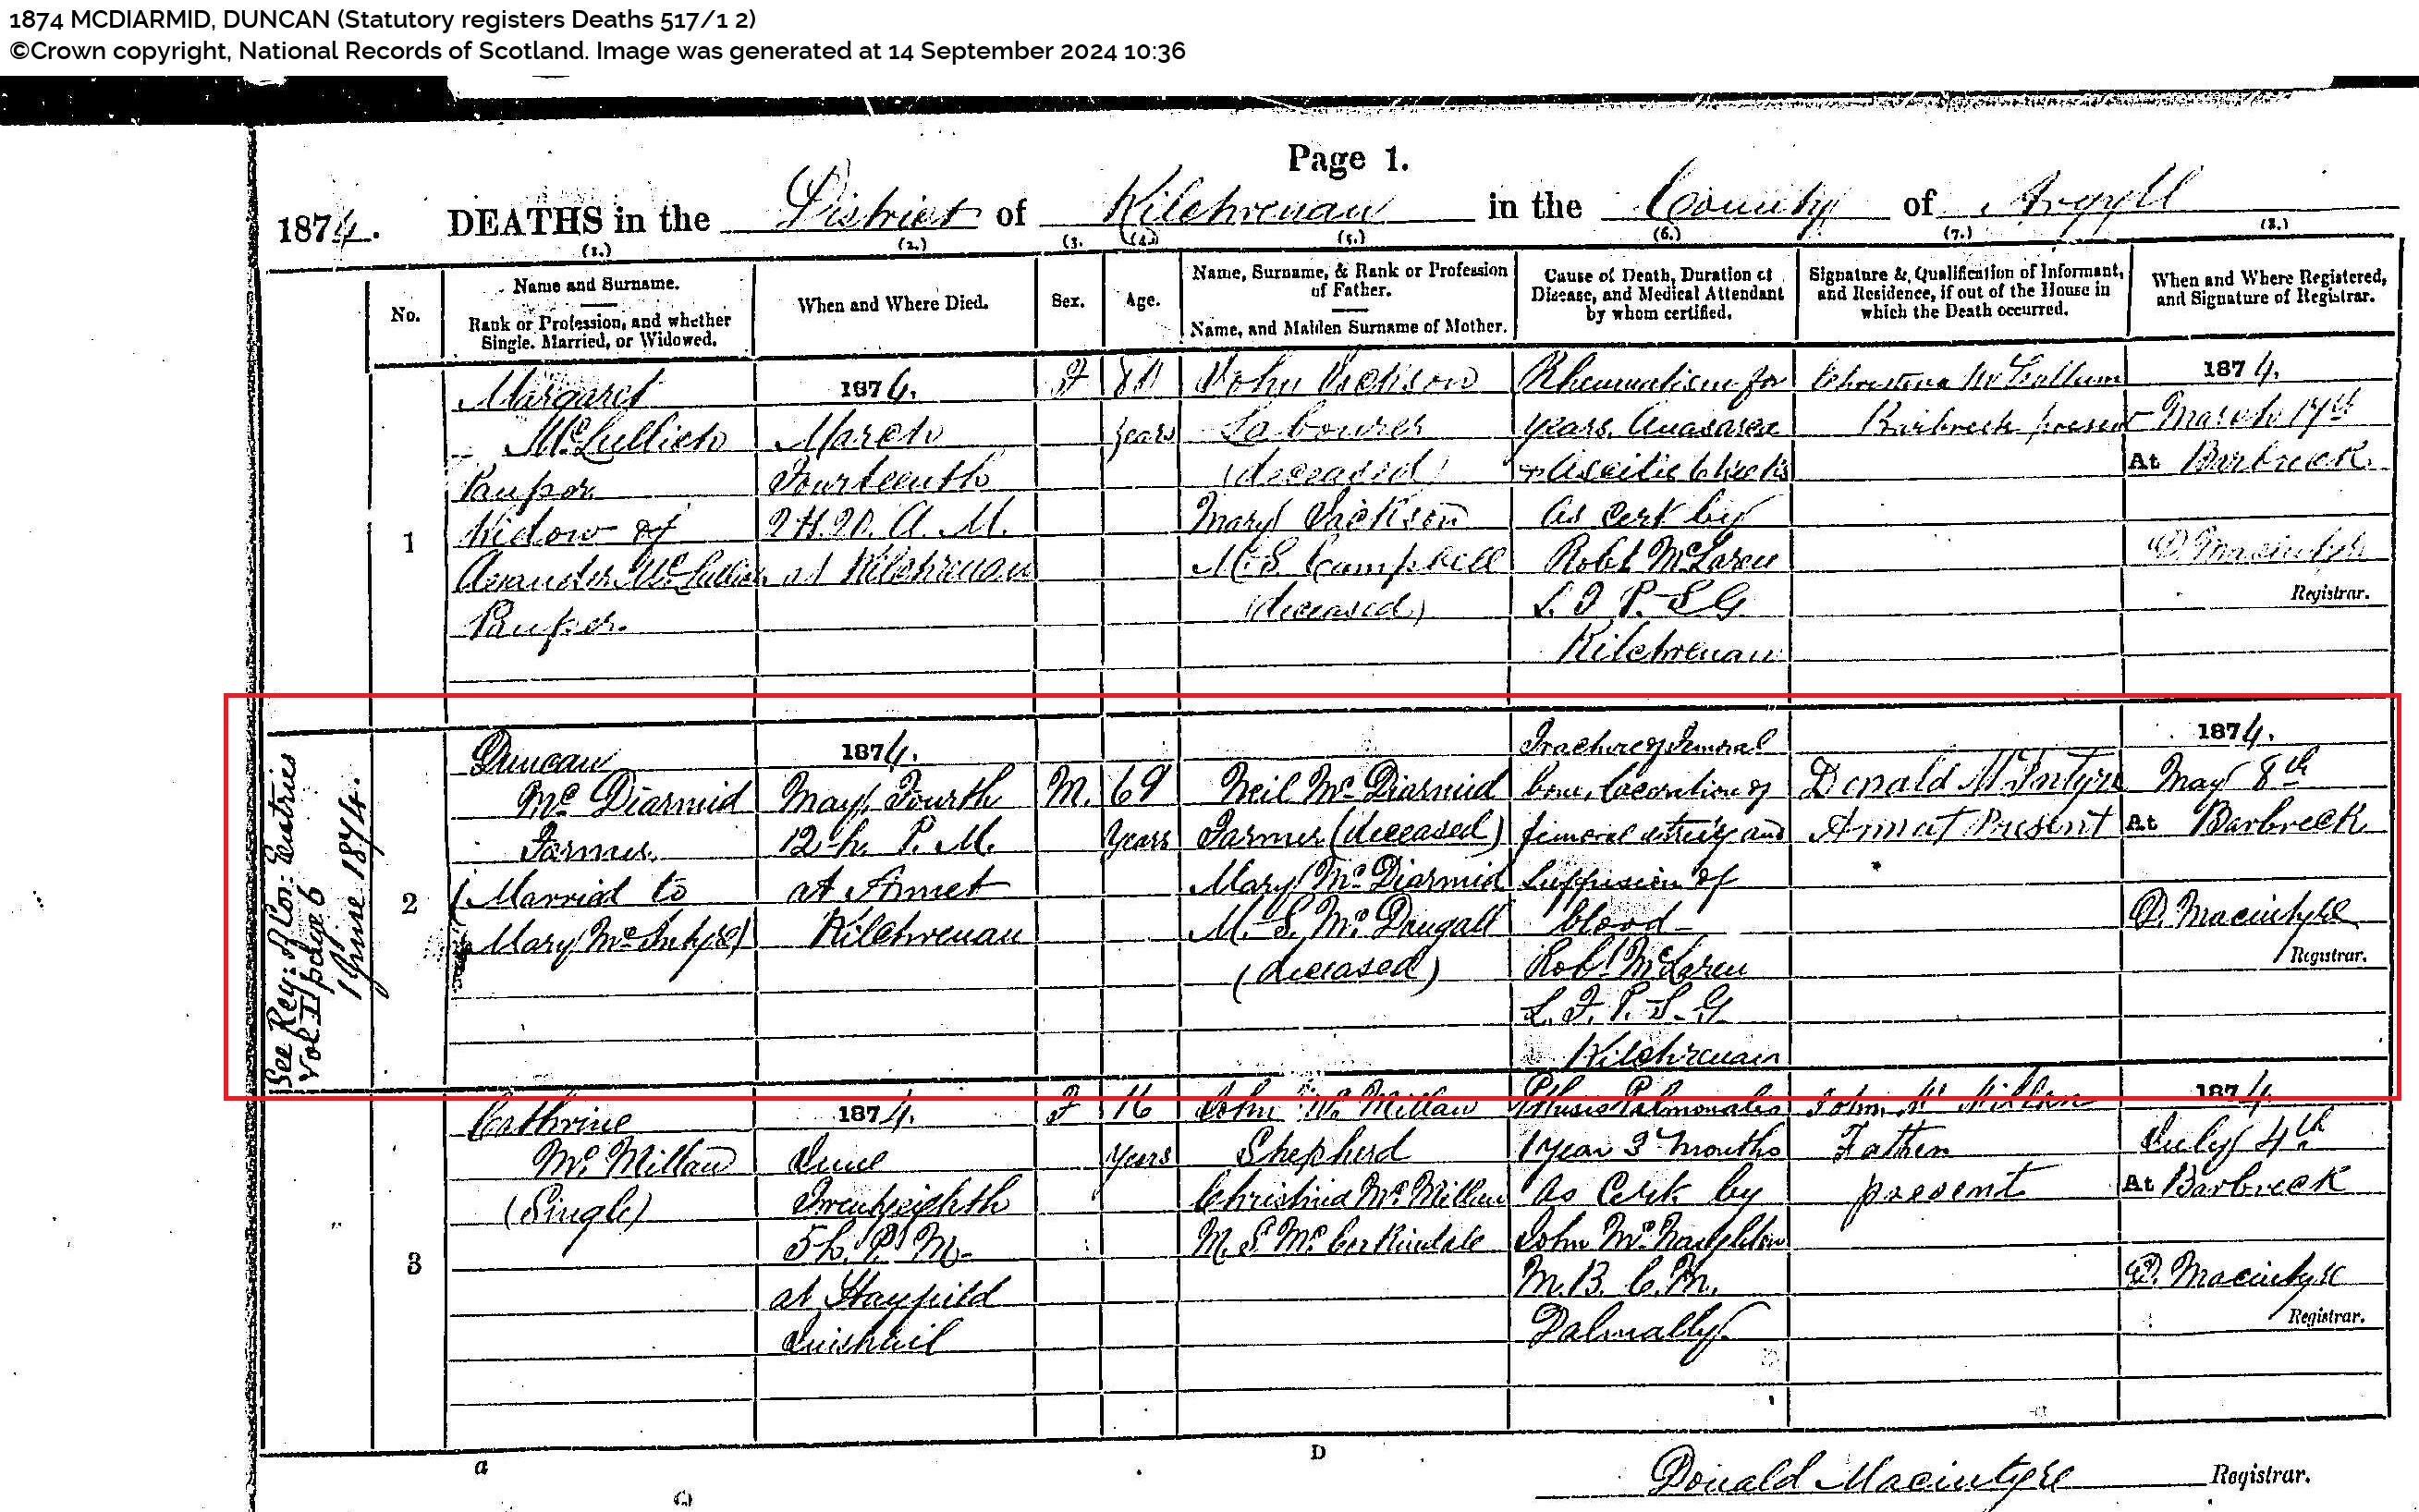 1874 MCDIARMID, DUNCAN (Statutory registers Deaths 517/1 2)
©Crown copyright, National Records of Scotland. Image was generated at 14 September 2024 10:36
Page 1.
1874. DEATHS in the District of Kilchrenan in the County of Argyll
(1.) (2.) (3. (4.) (5.) (6.) (7.) (8.)
No.
Name and Surname.
Rank or Profession, and whether
Single, Married, or Widowed.
When and Where Died.
Sex.
Age.
Name, Surname, & Rank or Profession
of Father.
Name, and Maiden Surname of Mother.
Cause of Death, Duration of
Disease, and Medical Attendant
by whom certified.
Signature & Qualification of Informant,
and Residence, if out of the House in
which the Death occurred.
When and Where Registered,
and Signature of Registrar.
1
Margaret
McLullich
Pauper
Widow of
Pauper.
1874.
March
Fourteenth
A. M.
at Kilchrenan
F
80
years
John Jackson
Labourer
(deceased)
Mary Jackson
M.S. Campbell
(deceased)
Rheumatism for
years. Anasarca
As cert by
Robt McLaren
L. F. P. S. G.
Kilchrenan
Christina McCallum
Barbreck present
1874.
March 17th
At Barbreck
D. Macintyre
Registrar.
See Reg: of Cor: Entries
Vol II page 6
1 June 1874.
2
Duncan
Mc Diarmid
Farmer
(Married to
Mary McIntyre)
1874.
May, Fourth
12 h. P. M.
at Annet
Kilchrenan
M.
69
Years
Neil Mc Diarmid
Farmer (deceased)
Mary Mc Diarmid
M. S. Mc Dougall
(deceased)
Fracture of Femoral
bone, laceration of
femoral artery and
suffusion of
blood
Robt McLaren
L. F. P. S. G.
Kilchrenan
Donald McIntyre
Annat Present
1874.
May 8th
At Barbreck
D. Macintyre
Registrar.
3
Cathrine
Mc Millan
(Single)
1874.
June
Twentyeighth
5 h. P. M.
at Hayfield
Inishail
F
16
years
John Mc Millan
Shepherd
Christina Mc Millan
M. S. Mc Corkindale
Phthisis Pulmonalis
1 year 3 months
As Cert by
John McNaughton
M.B. C.M.
Dalmally
John Mc Millan
Father
present
1874
July 4th
At Barbreck
D. Macintyre
Registrar.
a D
Donald Macintyre Registrar.